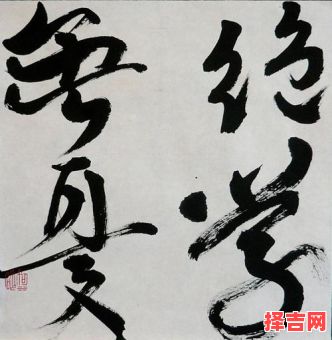 绝学
无忧
择吉网